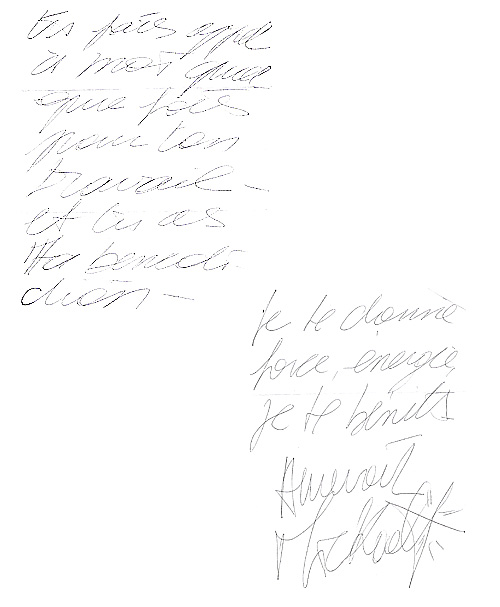 tu fais appel
à moi quel
que fois
pour ton
travail -
et tu as
Ma bénédi-
chion -
Je te donne
force, énergie,
je te bénits